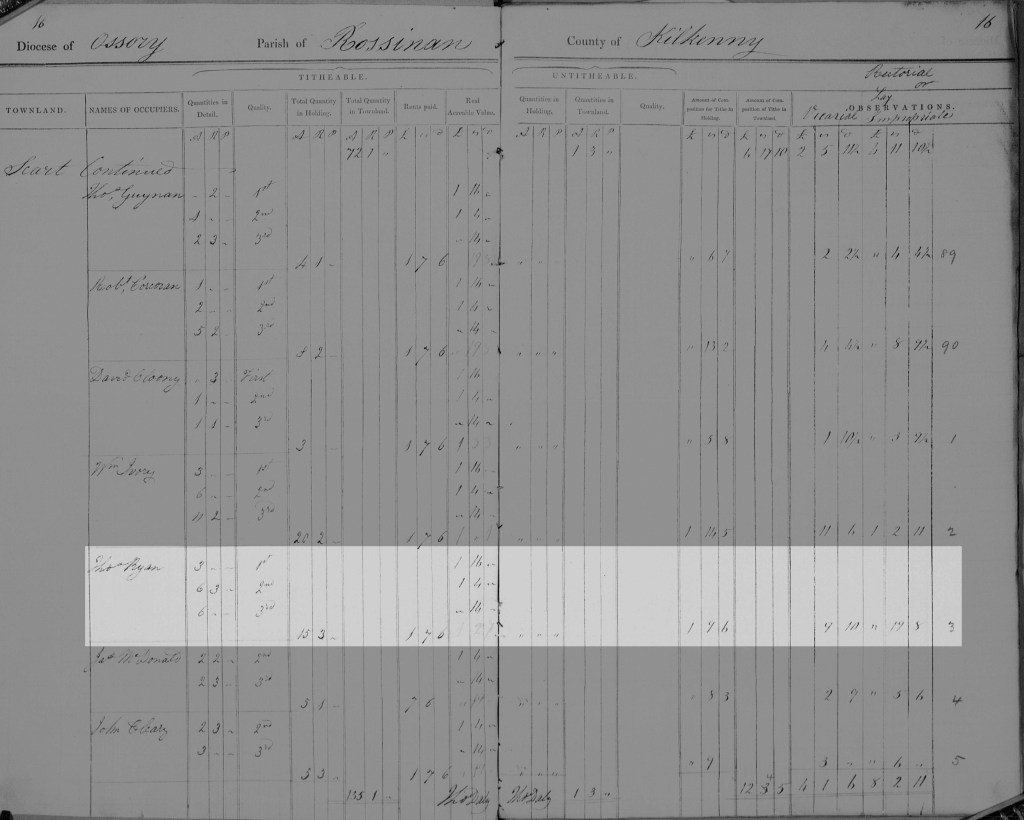 16 16
Diocese of Ossory Parish of Rossinan County of Kilkenny
TITHEABLE. UNTITHEABLE. Rectorial or
TOWNLAND. NAMES OF OCCUPIERS. Quantities in Detail. Quality. Total Quantity in Holding. Total Quantity in Townland. Rent paid. Real Acreable Value. Quantities in Holding. Quantities in Townland. Quality. Amount of Composition for Tithe in Holding. Amount of Composition of Tithe in Townland. OBSERVATIONS.
Vicarial Lay Impropriate
72 1 " 1 3 " 6 17 10 2 5 11
Scart Continued
Thos. Guynan - 2 - 1st 1 14 -
1 - - 2nd 1 4 -
2 3 - 3rd - 14 -
4 1 - 1 7 6 " 6 7 2 2½ " 4 4½ 89
Robt. Corcoran 1 - - 1st 1 14 -
2 - - 2nd 1 4 -
5 2 - 3rd - 14 -
8 2 - 1 7 6 " 13 2 4 4½ " 8 9½ 90
David Cloony - 3 - First 1 14
1 - - 2nd 1 4 -
1 1 - 3rd - 14 -
3 1 7 6 " 5 8 1 10½ " 3 9½ 1
Wm Ivory 3 - - 1st 1 14 -
6 - - 2nd 1 4 -
11 2 - 3rd - 14 -
20 2 - 1 7 6 1 14 5 11 6 1 2 11 2
Thos Ryan 3 - - 1st 1 14 -
6 3 - 2nd 1 4 -
6 - - 3rd - 14 -
15 3 - 1 7 6 1 9 6 9 10 " 19 8 3
Jas McDonald 2 2 - 2nd 1 4 -
2 3 - 3rd - 14 -
5 1 - 7 6 " 8 3 2 9 " 5 6 4
John Cleary 2 3 - 2nd 1 4 -
3 - - 3rd - 14 -
5 3 - 1 7 6 " 9 3 " " 6 " 5
135 1 " Thos Daly Thos Daly 1 3 " 12 5 4 1 6 8 2 11